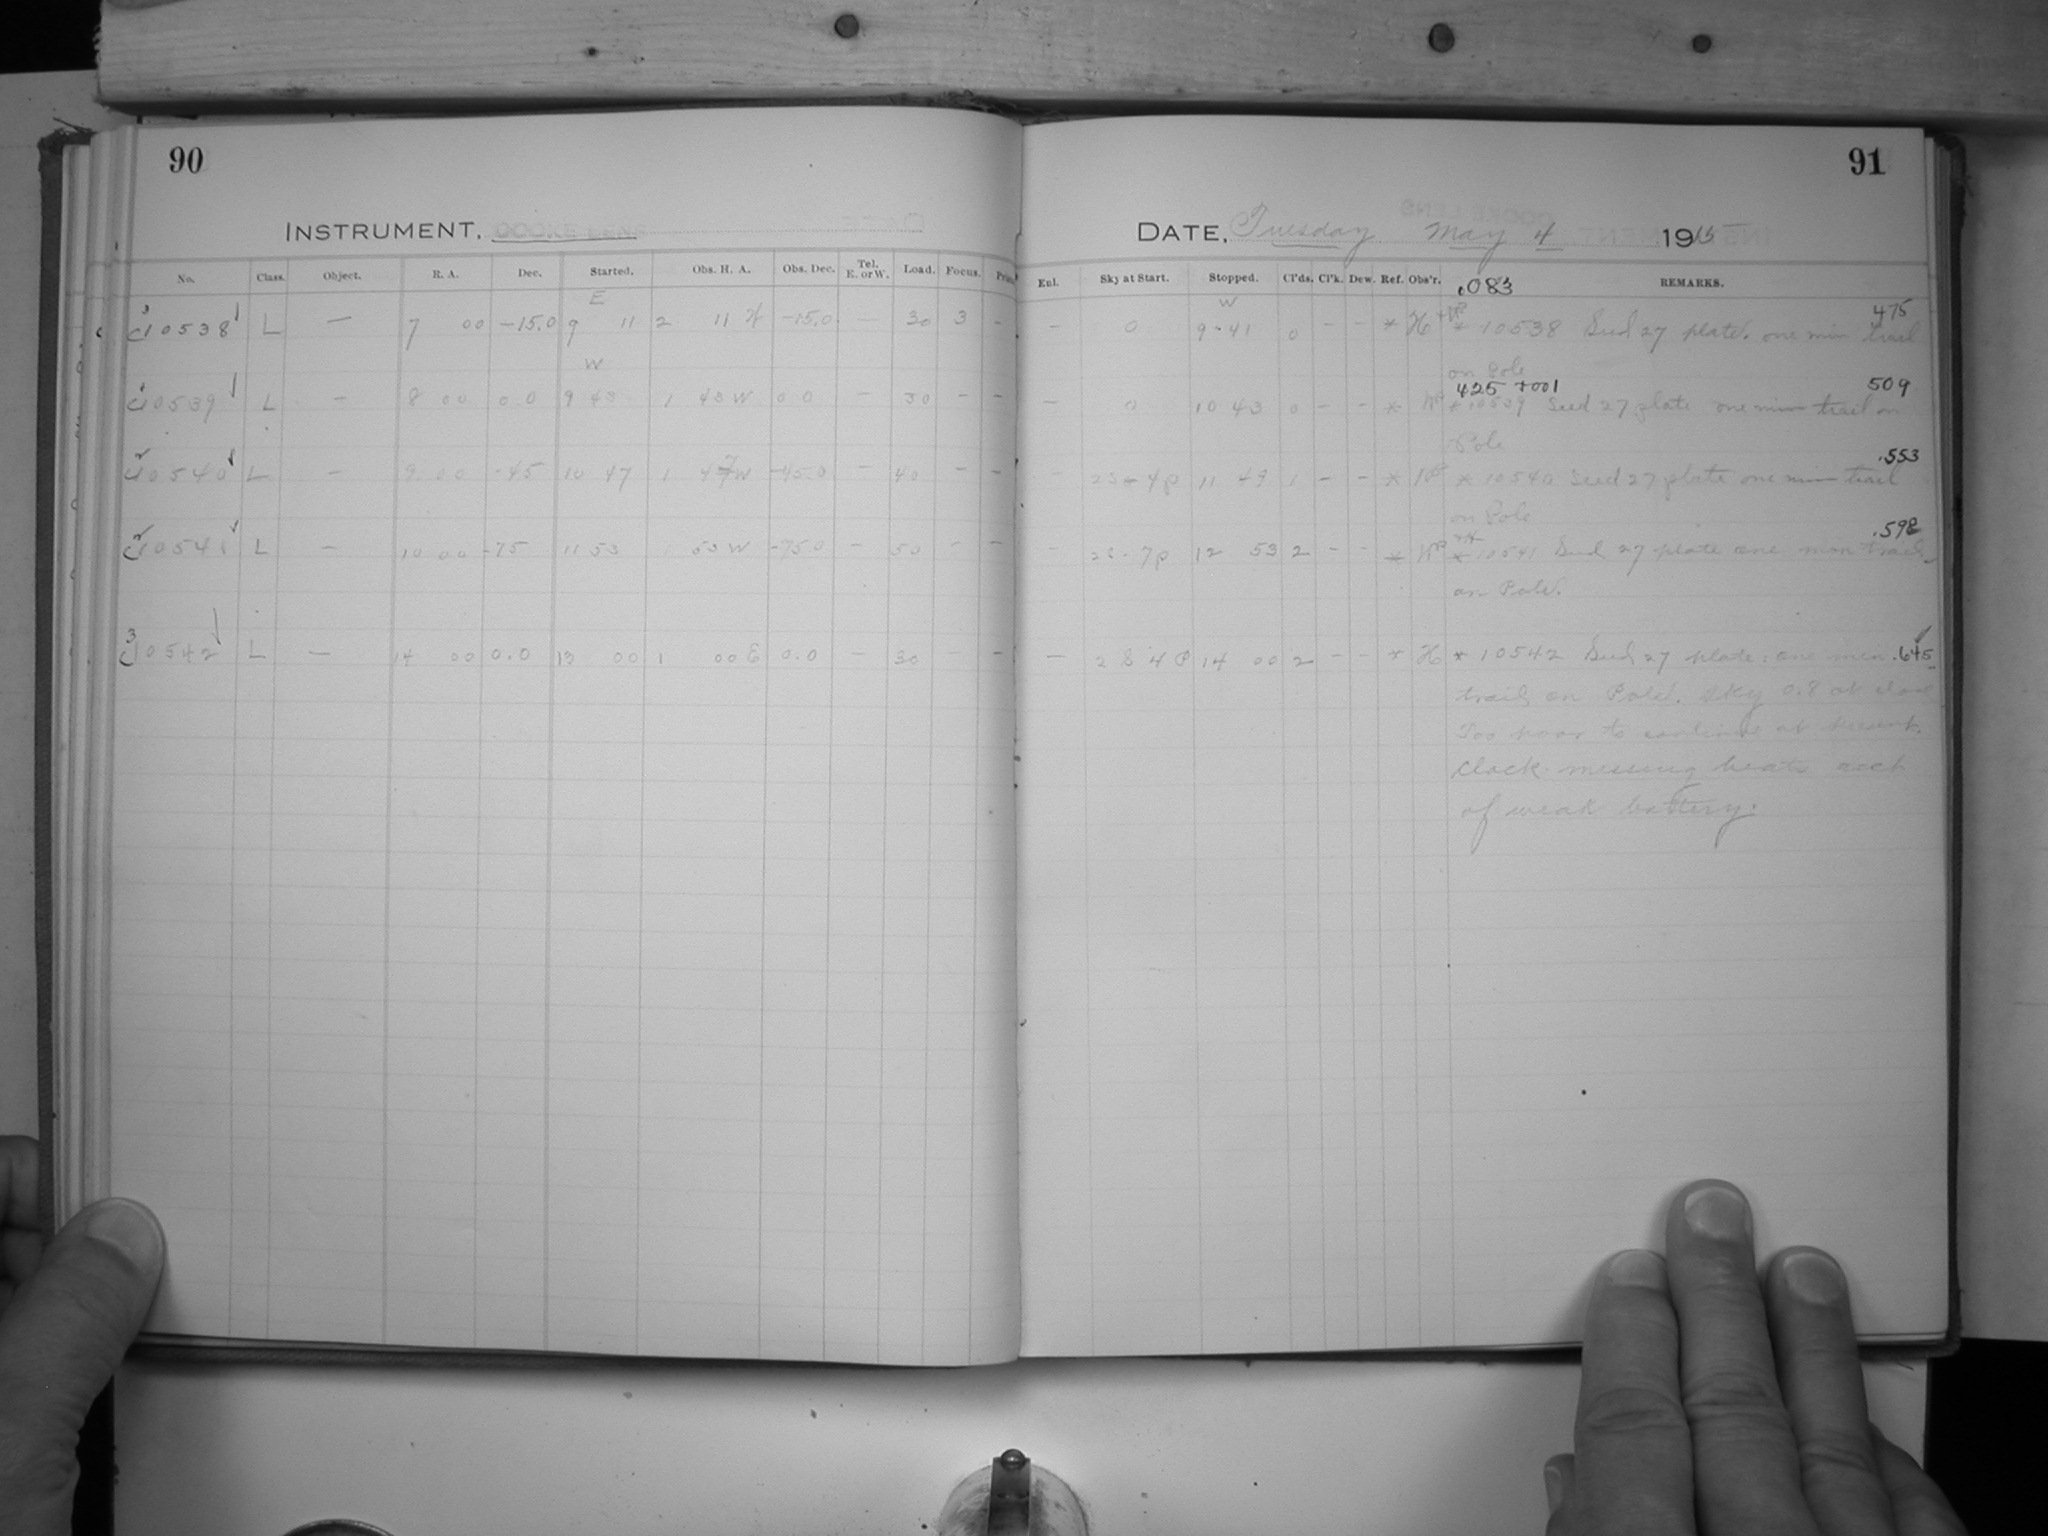 90
INSTRUMENT. COOKE LENS
No. Class. Object. R. A. Dec. Started. Obs. H. A. Obs. Dec. Tel. E. or W. Load. Focus.
E
3 C10538 L — 7 00 -15.0 9 11 2 11 W -15.0 — 30 3 -
W
C10539 L — 8 00 0.0 9 43 1 43 W 0 0 — 30 - -
C10540 L — 9 00 -45 10 47 1 47 W -45.0 — 40 - -
C10541 L — 10 00 -75 11 53 53 W -75.0 — 50 - -
3
C10542 L — 14 00 0.0 13 00 1 00 E 0.0 — 30 - -
91
DATE, Tuesday May 4 1915
Eul. Sky at Start. Stopped. Cl'ds. Cl'k. Dew. Ref. Obs'r. REMARKS.
.083
W 475
— 0 9-41 0 - - * H * 10538 Seed 27 plate. one min trail
on Pole
425 +001 509
0 10 43 0 - - * * 10539 Seed 27 plate one min trail on
Pole
.553
- 2S-4P 11 49 1 - - * * 10540 Seed 27 plate one min trail
on Pole
.598
2S-7P 12 53 2 - - * * 10541 Seed 27 plate one min trail
on Pole.
— 2 S 4 P 14 00 2 - - * H * 10542 Seed 27 plate. one min .645
trail on Pole. Sky 0.8 at close
Too poor to continue at present.
Clock missing beats acct
of weak battery.